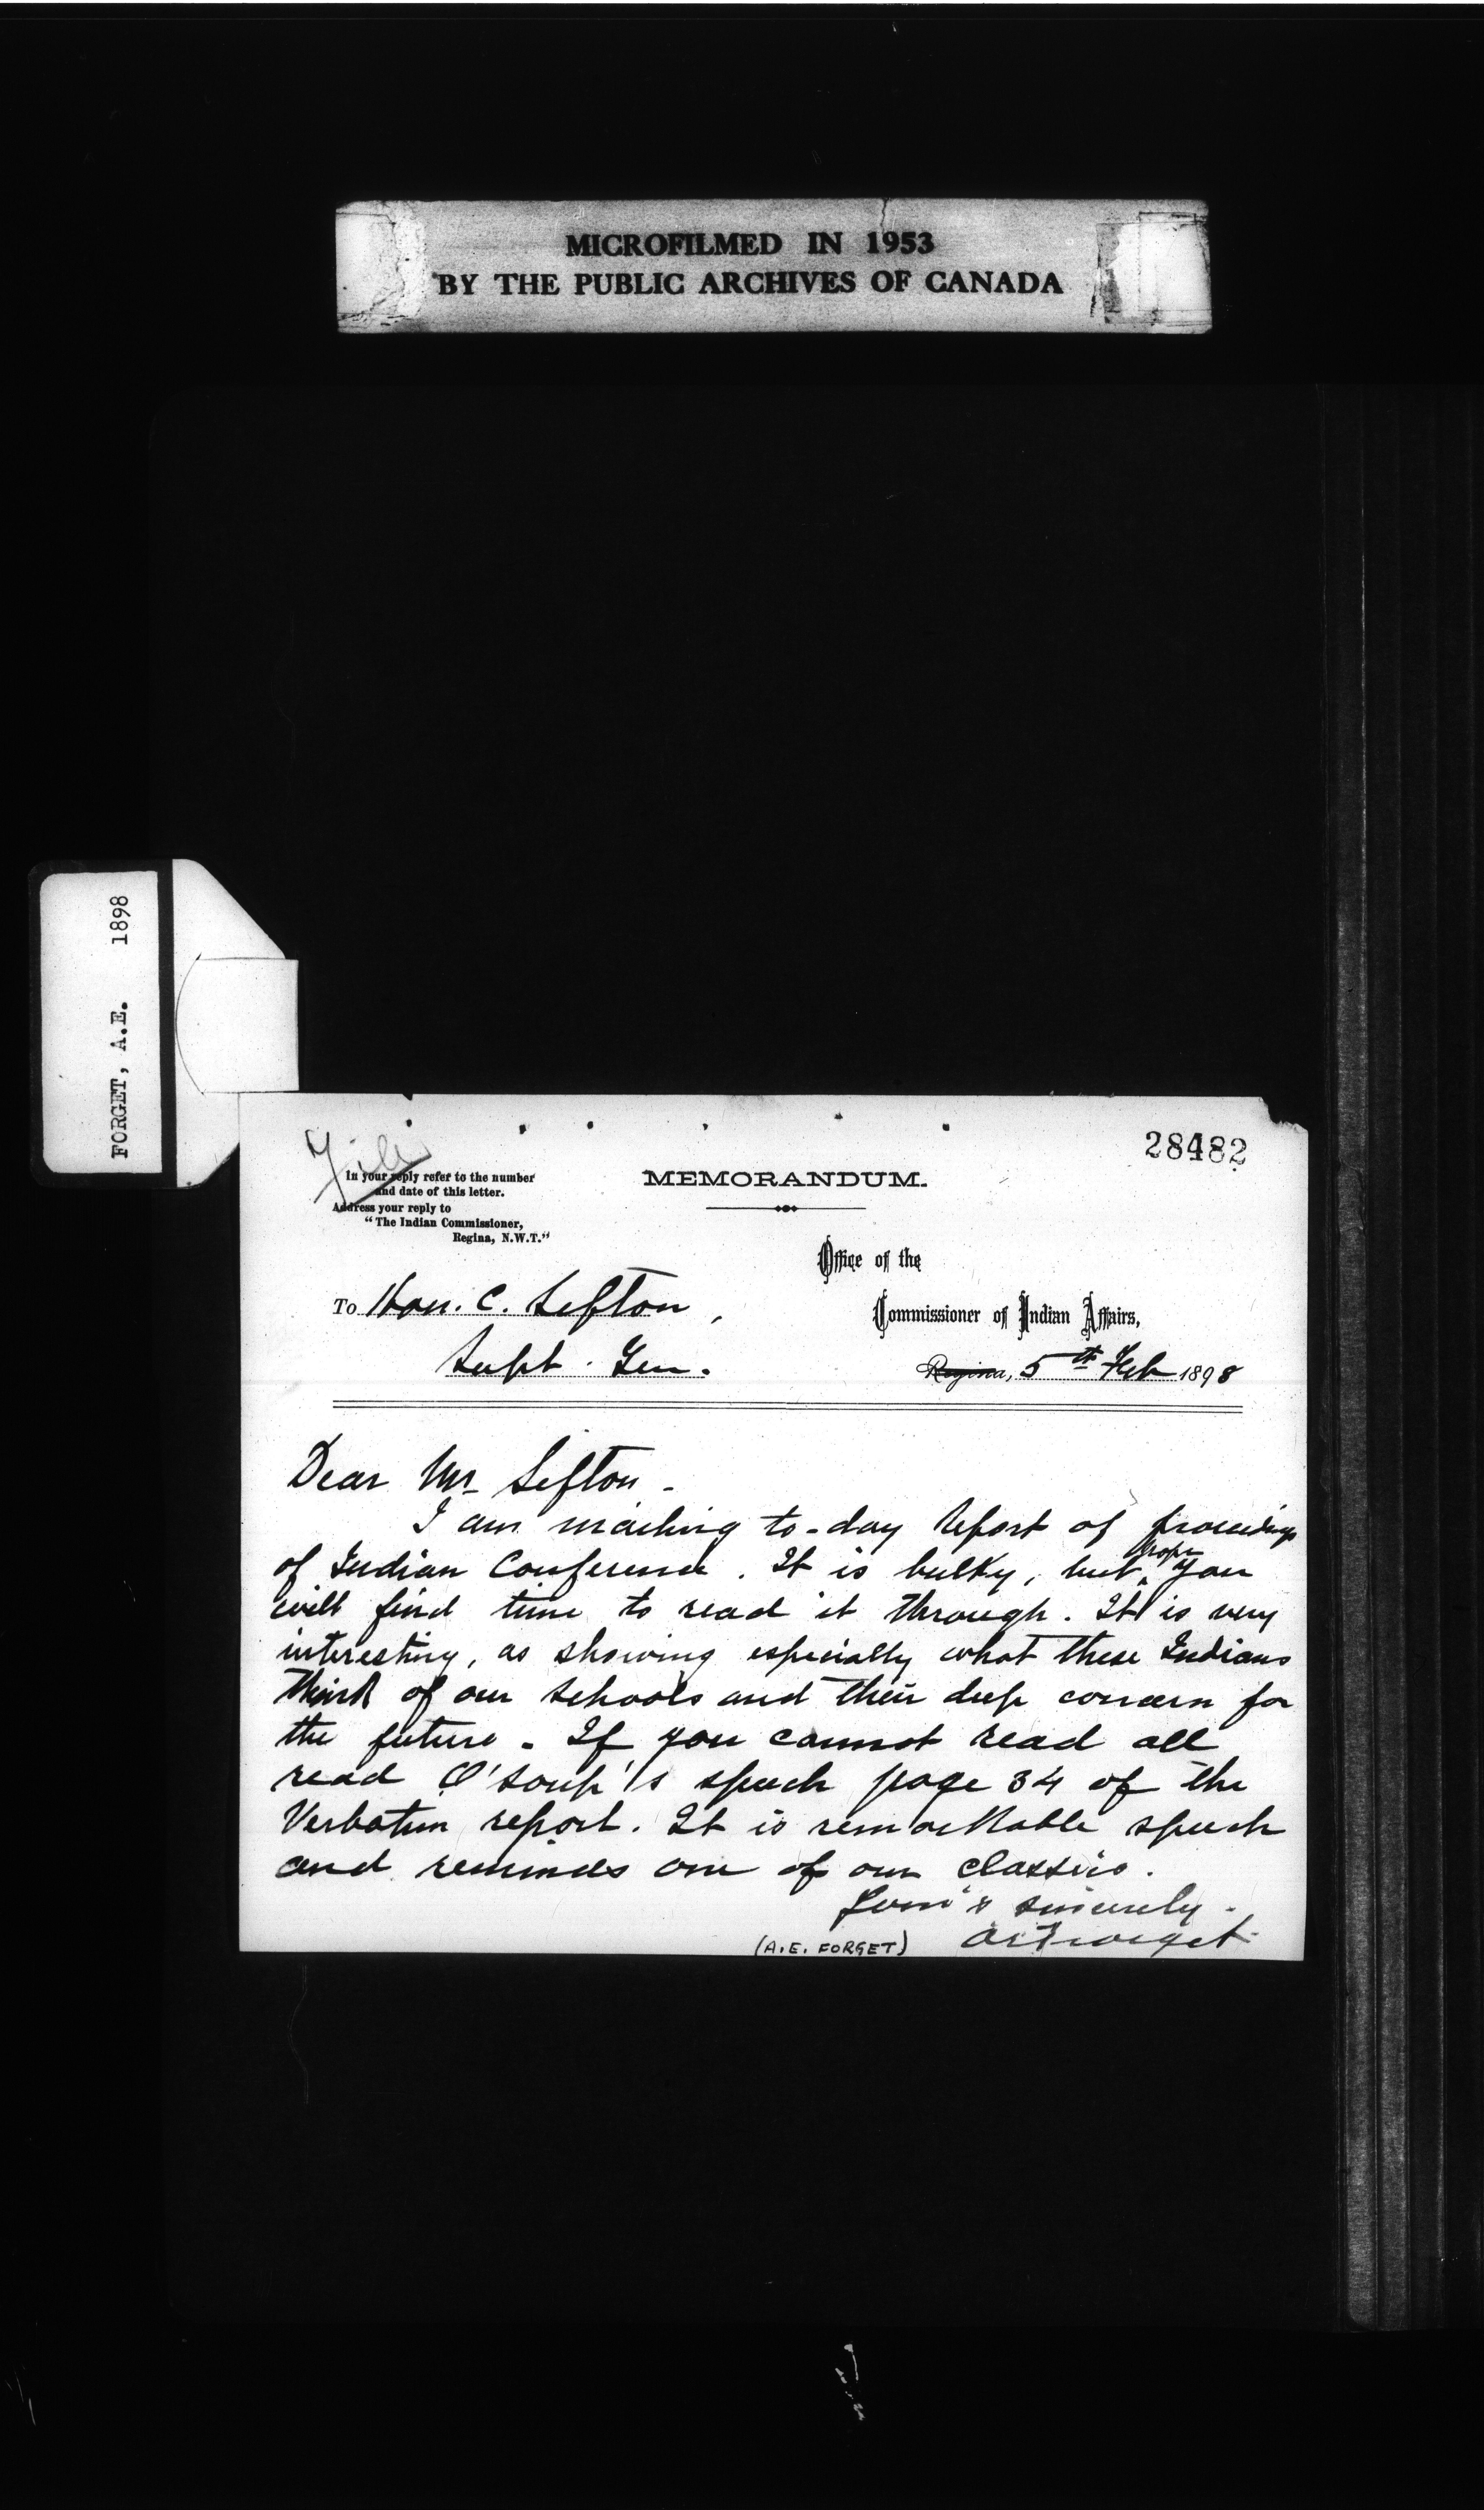 MICROFILMED IN 1953
BY THE PUBLIC ARCHIVES OF CANADA
FORGET, A.E. 1898
28482
File
In your reply refer to the number
and date of this letter.
Address your reply to
"The Indian Commissioner,
Regina, N.W.T."
MEMORANDUM.
Office of the
Commissioner of Indian Affairs,
To Hon. C. Sifton,
Supt. Gen.
Regina, 5th Feb 1898
Dear Mr Sifton -
I am mailing to-day report of proceedings
of Indian Conference. It is bulky, but hope you
will find time to read it through. It is very
interesting, as showing especially what these Indians
think of our schools and their deep concern for
the future. If you cannot read all
read O'Soup's speech page 34 of the
Verbatim report. It is remarkable speech
and reminds one of our classics.
Your's sincerely.
(A.E. FORGET) AEForget